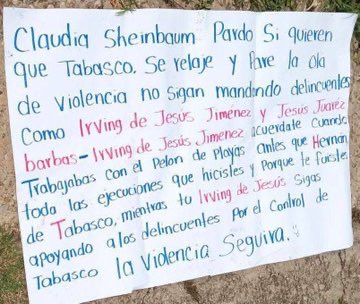 Claudia Sheinbaum Pardo Si quieren
que Tabasco. Se relaje y Pare la ola
de violencia no sigan mandando delincuentes
Como Irving de Jesus Jiménez y Jesus Juarez
barbas-Irving de Jesús Jimenez acuerdate cuando
Trabajabas con el Pelon de Playas antes que Hernán
toda las ejecuciones que hicistes y Porque te fuistes
de Tabasco, mientras tu Irving de Jesús Sigas
apoyando a los delincuentes Por el Control de
Tabasco la violencia Seguira.